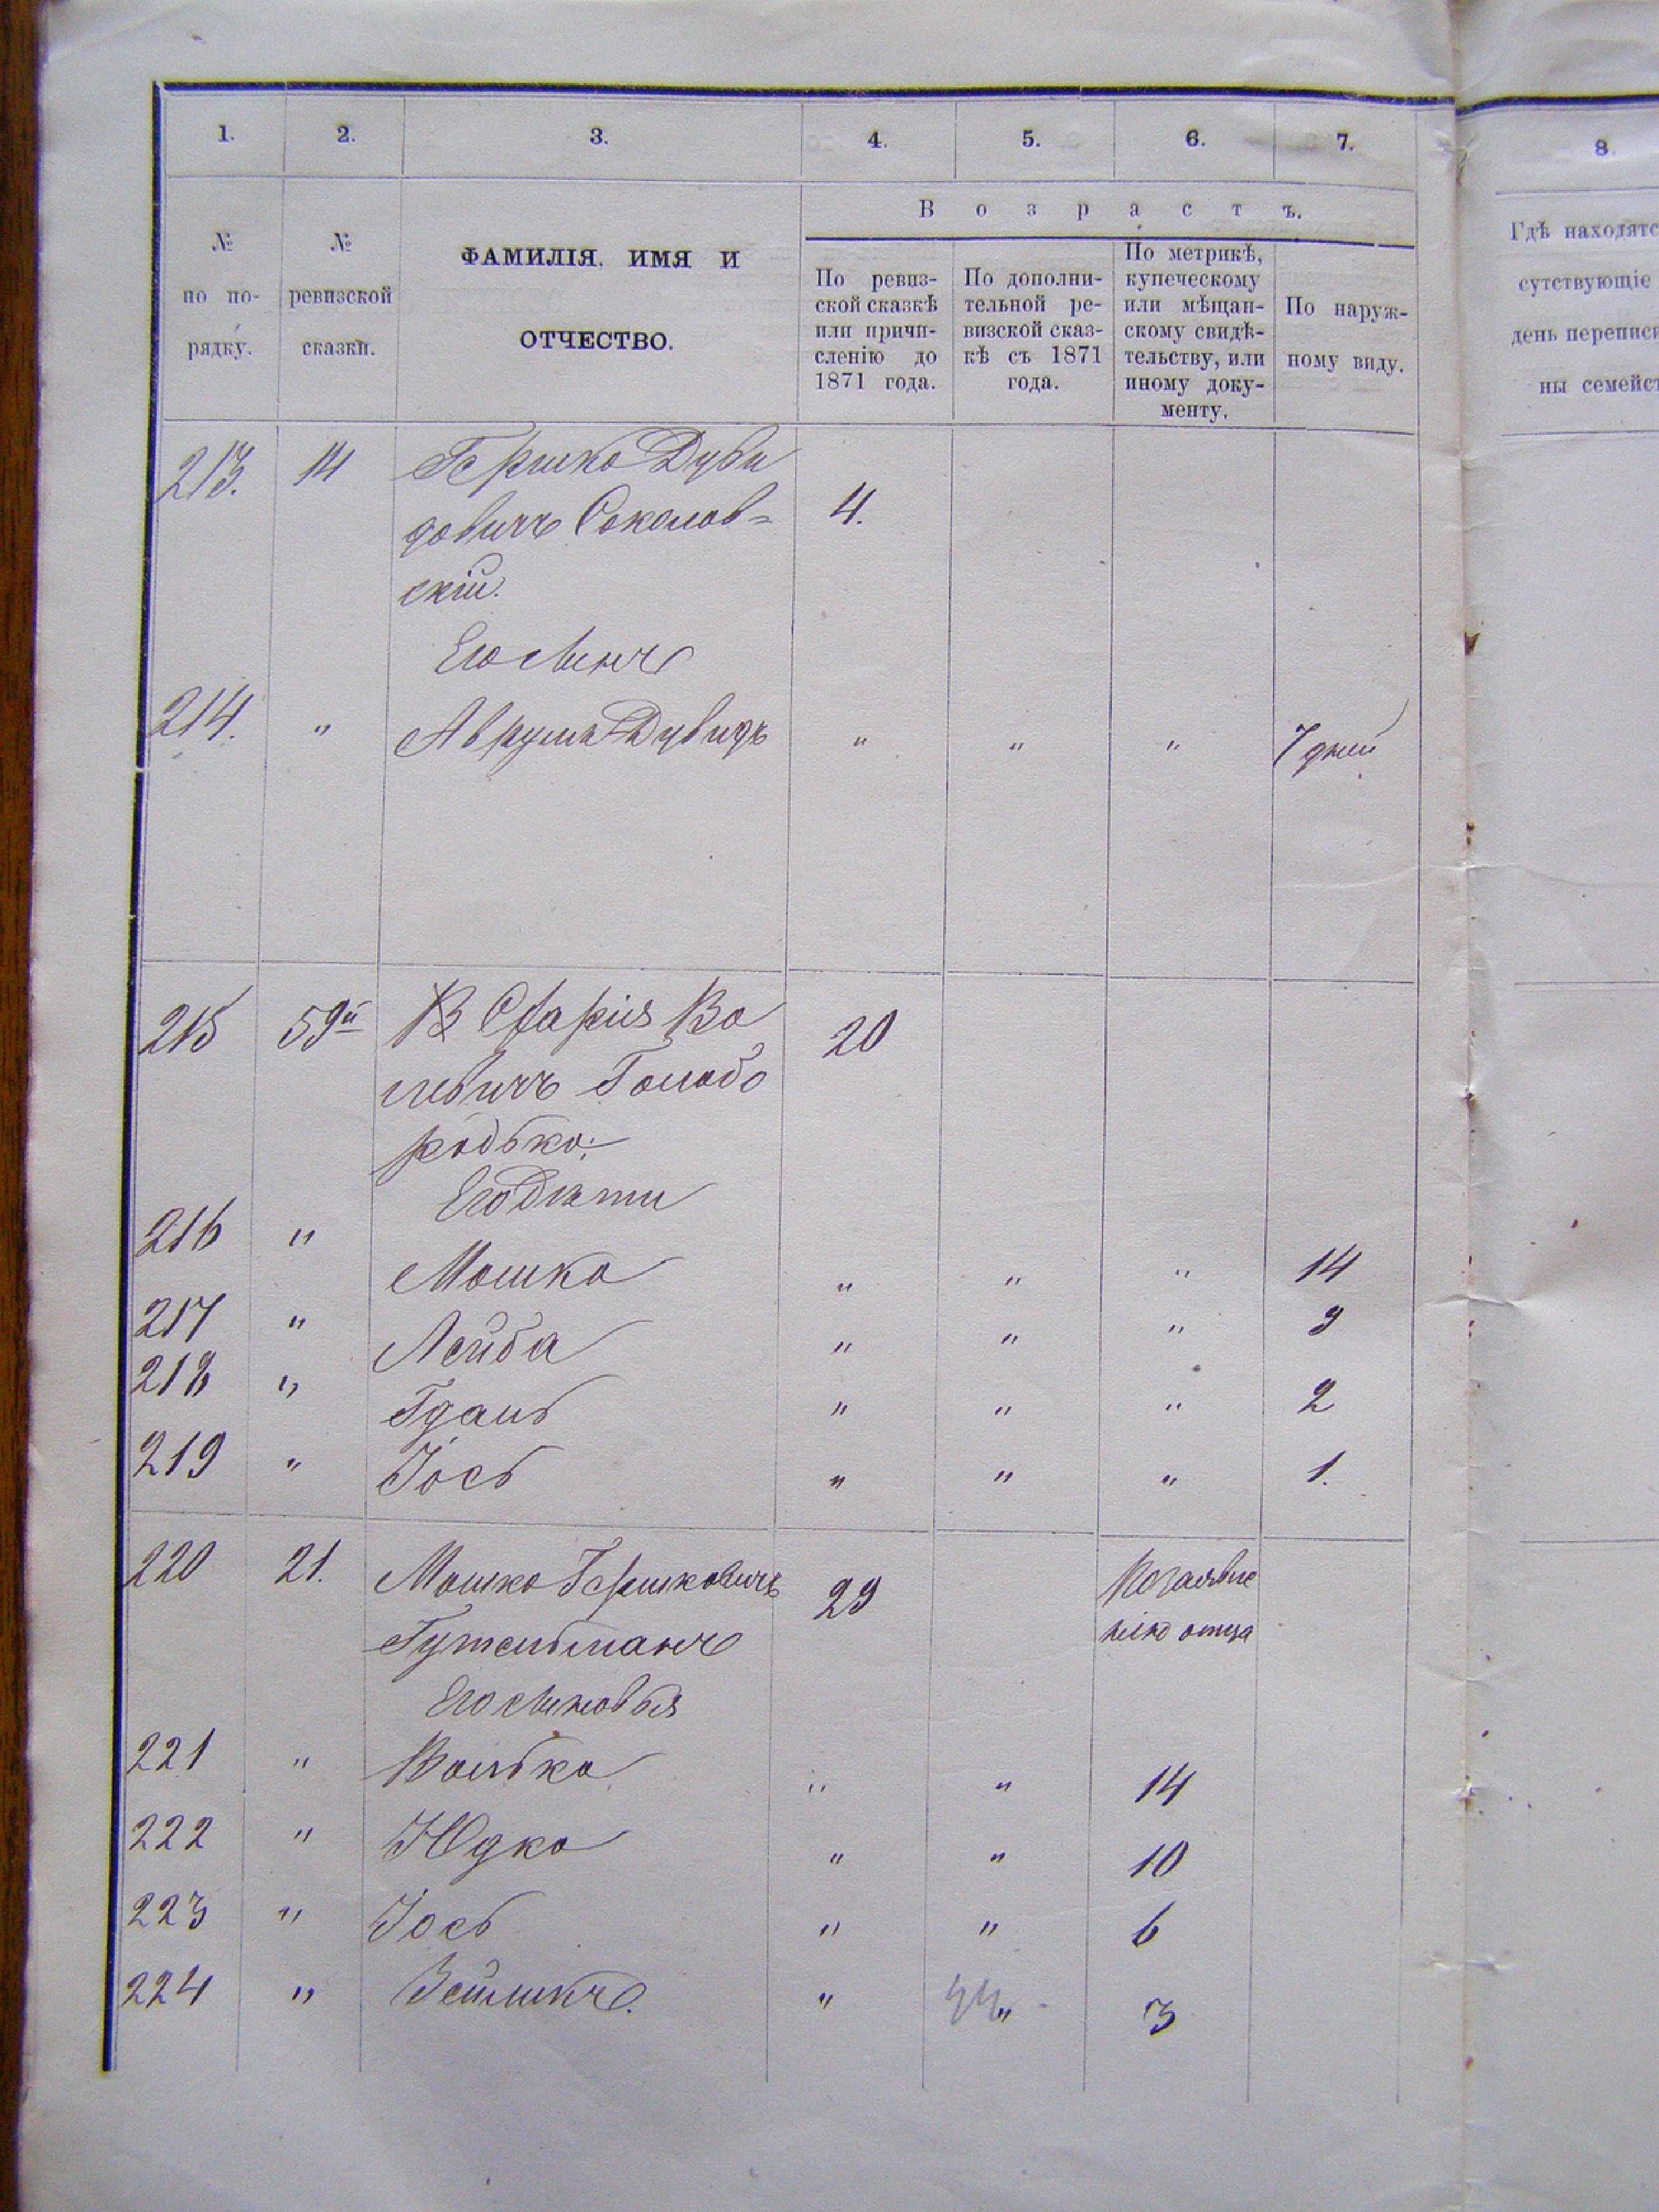 1. 2. 3. 4. 5. 6. 7. 8.
В о з р а с т ъ.
№ по по- рядку.
№ ревизской сказки.
ФАМИЛІЯ, ИМЯ И
ОТЧЕСТВО.
По ревиз-
ской сказкѣ
или причи-
сленію до
1871 года.
По дополни-
тельной ре-
визской сказ-
кѣ съ 1871
года.
По метрикѣ,
купеческому
или мѣщан-
скому свидѣ-
тельству, или
иному доку-
менту.
По наруж-
ному виду.
Гдѣ находятс
сутствующіе
день переписи
ны семейст
213. 14 Гершко Дуви
довичъ Соколов= 4.
скій.
Его сынъ
214. " Аврумъ Дувидъ " " " 7 дней
215 59й Во
левичъ Голобо 20
родько;
Его дѣти
216 " Мошко " " " 14
217 " Лейба " " " 9
218 " " " " 2
219 " Іось " " " 1.
220 21. Мошко Гершковичъ 29
Гутельманъ отца
Его сыновья
221 " Волько " " 14
222 " Юдко " " 10
223 " Іось " " 6
224 " " " 3